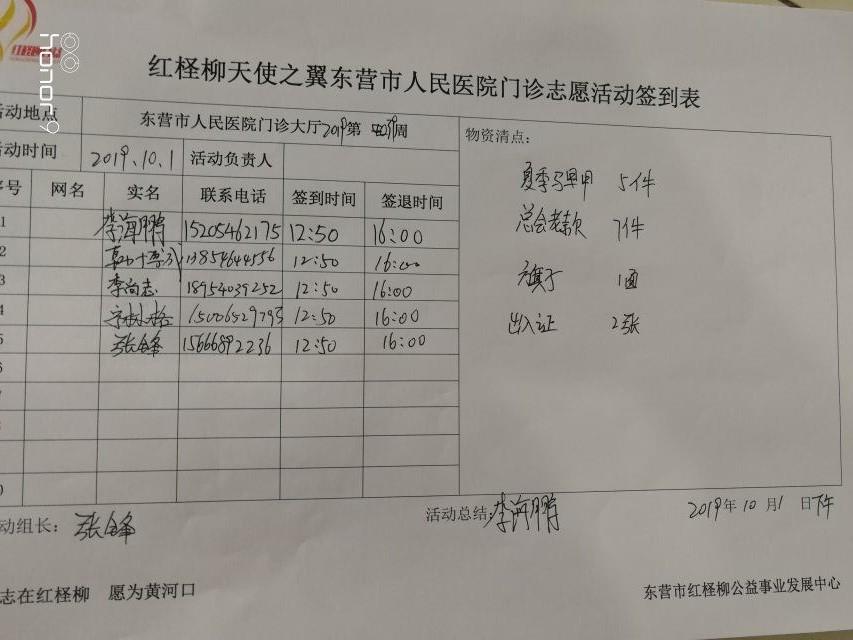 honor 9
红柽柳天使之翼东营市人民医院门诊志愿活动签到表
活动地点 东营市人民医院门诊大厅2019第 39周
物资清点:
活动时间 2019.10.1 活动负责人
序号 网名 实名 联系电话 签到时间 签退时间
1 李海鹏 15205462175 12:50 16:00
2 13854644556 12:50 16:00
3 李尚志 18954039252 12:50 16:00
4 15006529795 12:50 16:00
5 张锋 15666892236 12:50 16:00
夏季马甲 5件
总会老款 7件
旗子 1面
出入证 2张
活动组长: 张锋
活动总结: 李海鹏
2019年10月1日下午
志在红柽柳 愿为黄河口
东营市红柽柳公益事业发展中心